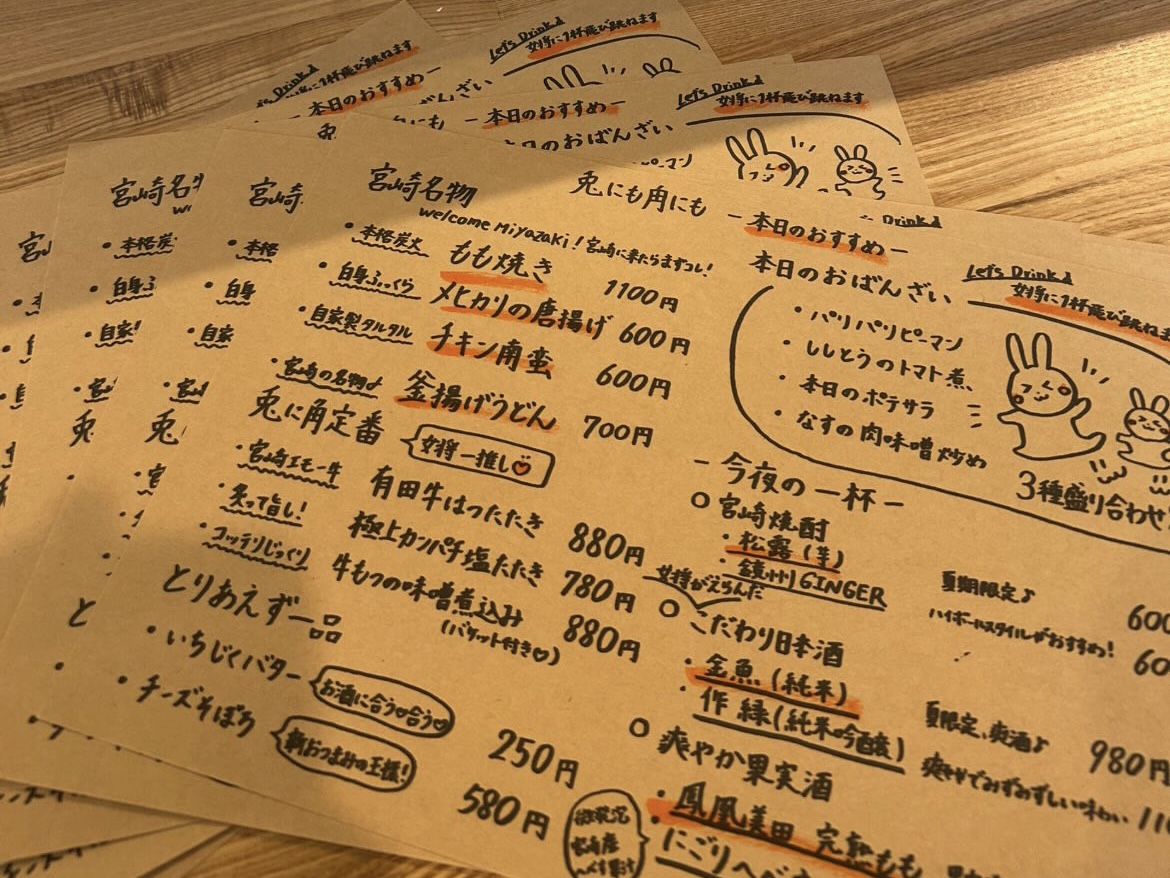 宮崎名物
welcome Miyazaki! 宮崎に来たらまずコレ!
・本格炭火 もも焼き 1100円
・白身ふっくら メヒカリの唐揚げ 600円
・自家製タルタル チキン南蛮 600円
・宮崎の名物♪ 釜揚げうどん 700円
兎に角定番 女将一推し♡
・宮崎エモー牛 有田牛はつたたき 880円
・炙って旨い! 極上カンパチ塩たたき 780円
・コッテリじっくり 牛もつの味噌煮込み 880円
(バケット付き♡)
とりあえず一品
・いちじくバター お酒に合う♡合う♡ 250円
・チーズそぼろ 新おつまみの王様! 580円
兎にも角にも
Let's Drink♪
女将に1杯飛び跳ねま
－本日のおすすめ－
本日のおばんざい
・パリパリピーマン
・ししとうのトマト煮
・本日のポテサラ
・なすの肉味噌炒め
3種盛り合わせ
－今夜の一杯－
○宮崎焼酎
・松露(芋) 夏期限定♪ 600
・鏡洲GINGER ハイボールスタイルがおすすめ! 60
女将がえらんだ
○こだわり日本酒
・金魚(純米) 夏限定、爽酒♪ 980円
・作 緑(純米吟醸) 爽やかでみずみずしい味わい 11
○爽やか果実酒
・鳳凰美田 完熟もも
宮崎産
へべす果汁
・にごりへべ
Let's Drink♪
女将に1杯飛び跳ねます
－本日のおすすめ－
本日のおばんざい
Let's Drink♪
女将に1杯飛び跳ねます
－本日のおすすめ－
Drink♪
宮崎名
・本格炭
・白身ふ
・自家
宮崎
・本格
・白身
・自家
兎